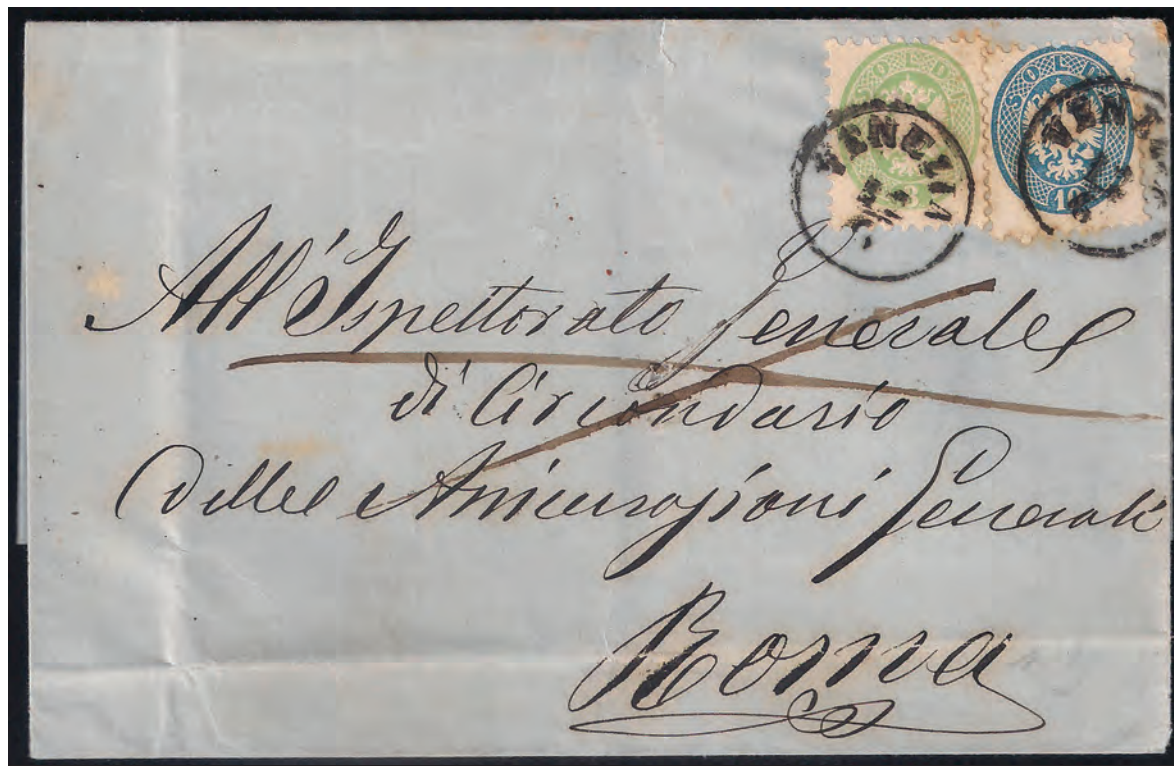 SOLDI SOLDI
VENEZIA VENEZ
3 10
All' Ispettorato Generale
di Circondario
delle Assicurazioni Generali
Roma